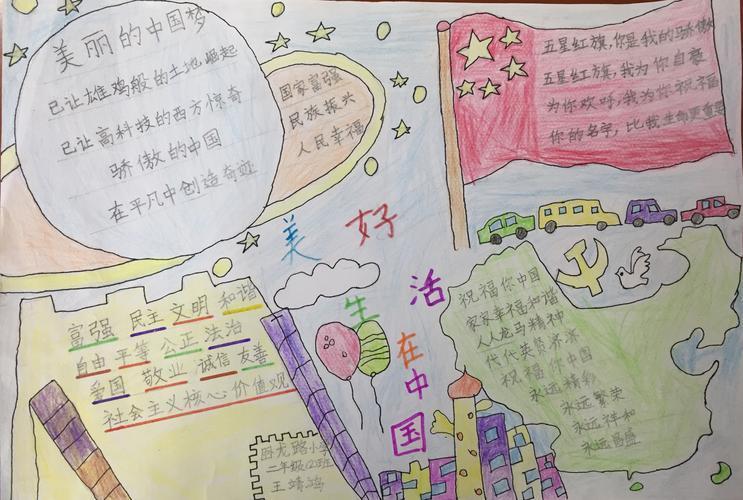 美丽的中国梦
已让雄鸡般的土地崛起
已让高科技的西方惊奇
骄傲的中国
在平凡中创造奇迹
国家富强
民族振兴
人民幸福
五星红旗，你是我的骄傲
五星红旗，我为你自豪
为你欢呼，我为你祝福
你的名字，比我生命更重要
美好生活在中国
富强 民主 文明 和谐
自由 平等 公正 法治
爱国 敬业 诚信 友善
社会主义核心价值观
祝福你中国
家家幸福和谐
人人龙马精神
代代英贤济济
祝福你中国
永远精彩
永远繁荣
永远祥和
永远昌盛
卧龙路小学
二年级(2)班
王靖鸿